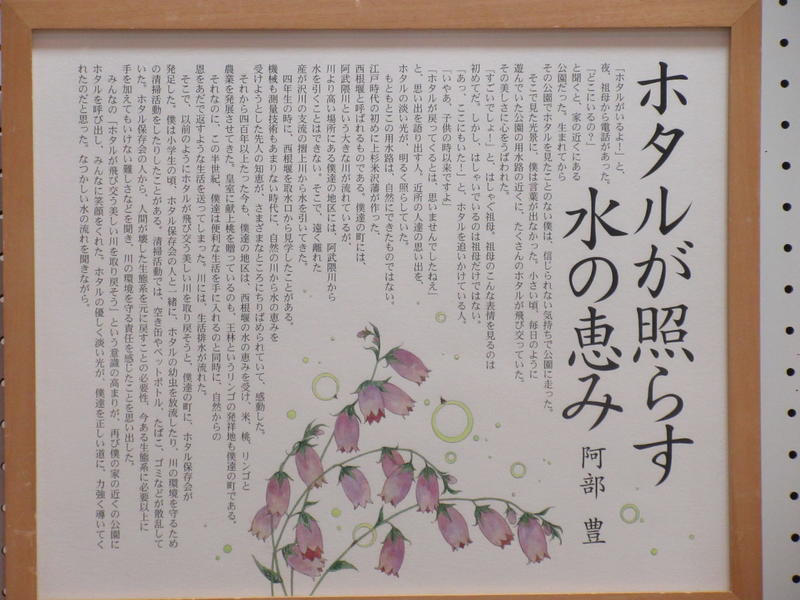 ホタルが照らす
水の恵み
阿部 豊
「ホタルがいるよ！」と、
夜、祖母から電話があった。
「どこにいるの？」
と聞くと、家の近くにある
公園だった。生まれてから
その公園でホタルを見たことのない僕は、信じられない気持ちで公園に走った。
そこで見た光景に、僕は言葉が出なかった。小さい頃、毎日のように
遊んでいた公園の用水路の近くに、たくさんのホタルが飛び交っていた。
その美しさに心をうばわれた。
「すごいでしょ！」と、はしゃぐ祖母。祖母のこんな表情を見るのは
初めてだ。しかし、はしゃいでいるのは祖母だけではない。
「あっ、ここにもいた！」と、ホタルを追いかけている人。
「いやあ、子供の時以来ですよ」
「ホタルが戻ってくるとは、思いませんでしたねえ」
と、思い出を語り出す人。近所の人達の思い出を、
ホタルの淡い光が、明るく照らしていた。
もともとこの用水路は、自然にできたものではない。
江戸時代の初めに上杉米沢藩が作った、
西根堰と呼ばれるものである。僕達の町には、
阿武隈川という大きな川が流れているが、
川より高い場所にある僕達の地区には、阿武隈川から
水を引くことはできない。そこで、遠く離れた
産が沢川の支流の摺上川から水を引いてきた。
四年生の時に、西根堰を取水口から見学したことがある。
機械も測量技術もあまりない時代に、自然の川から水の恵みを
受けようとした先人の知恵が、さまざまなところにちりばめられていて、感動した。
それから四百年以上たった今も、僕達の地区は、西根堰の水の恵みを受け、米、桃、リンゴと
農業を発展させてきた。皇室に献上桃を贈っているのも、王林というリンゴの発祥地も僕達の町である。
それなのに、この半世紀、僕達は便利な生活を手に入れるのと同時に、自然からの
恩をあだで返すような生活を送ってしまった。川には、生活排水が流れた。
そこで、以前のようにホタルが飛び交う美しい川を取り戻そうと、僕達の町に、ホタル保存会が
発足した。僕は小学生の頃、ホタル保存会の人と一緒に、ホタルの幼虫を放流したり、川の環境を守るため
の清掃活動をしたりしたことがある。清掃活動では、空き缶やペットボトル、たばこ、ゴミなどが散乱して
いた。ホタル保存会の人から、人間が壊した生態系を元に戻すことの必要性、今ある生態系に必要以上に
手を加えてもいけない難しさなどを聞き、川の環境を守る責任を感じたことを思い出した。
みんなの「ホタルが飛び交う美しい川を取り戻そう」という意識の高まりが、再び僕の家の近くの公園に
ホタルを呼び出し、みんなに笑顔をくれた。ホタルの優しく淡い光が、僕達を正しい道に、力強く導いてく
れたのだと思った。なつかしい水の流れを聞きながら。